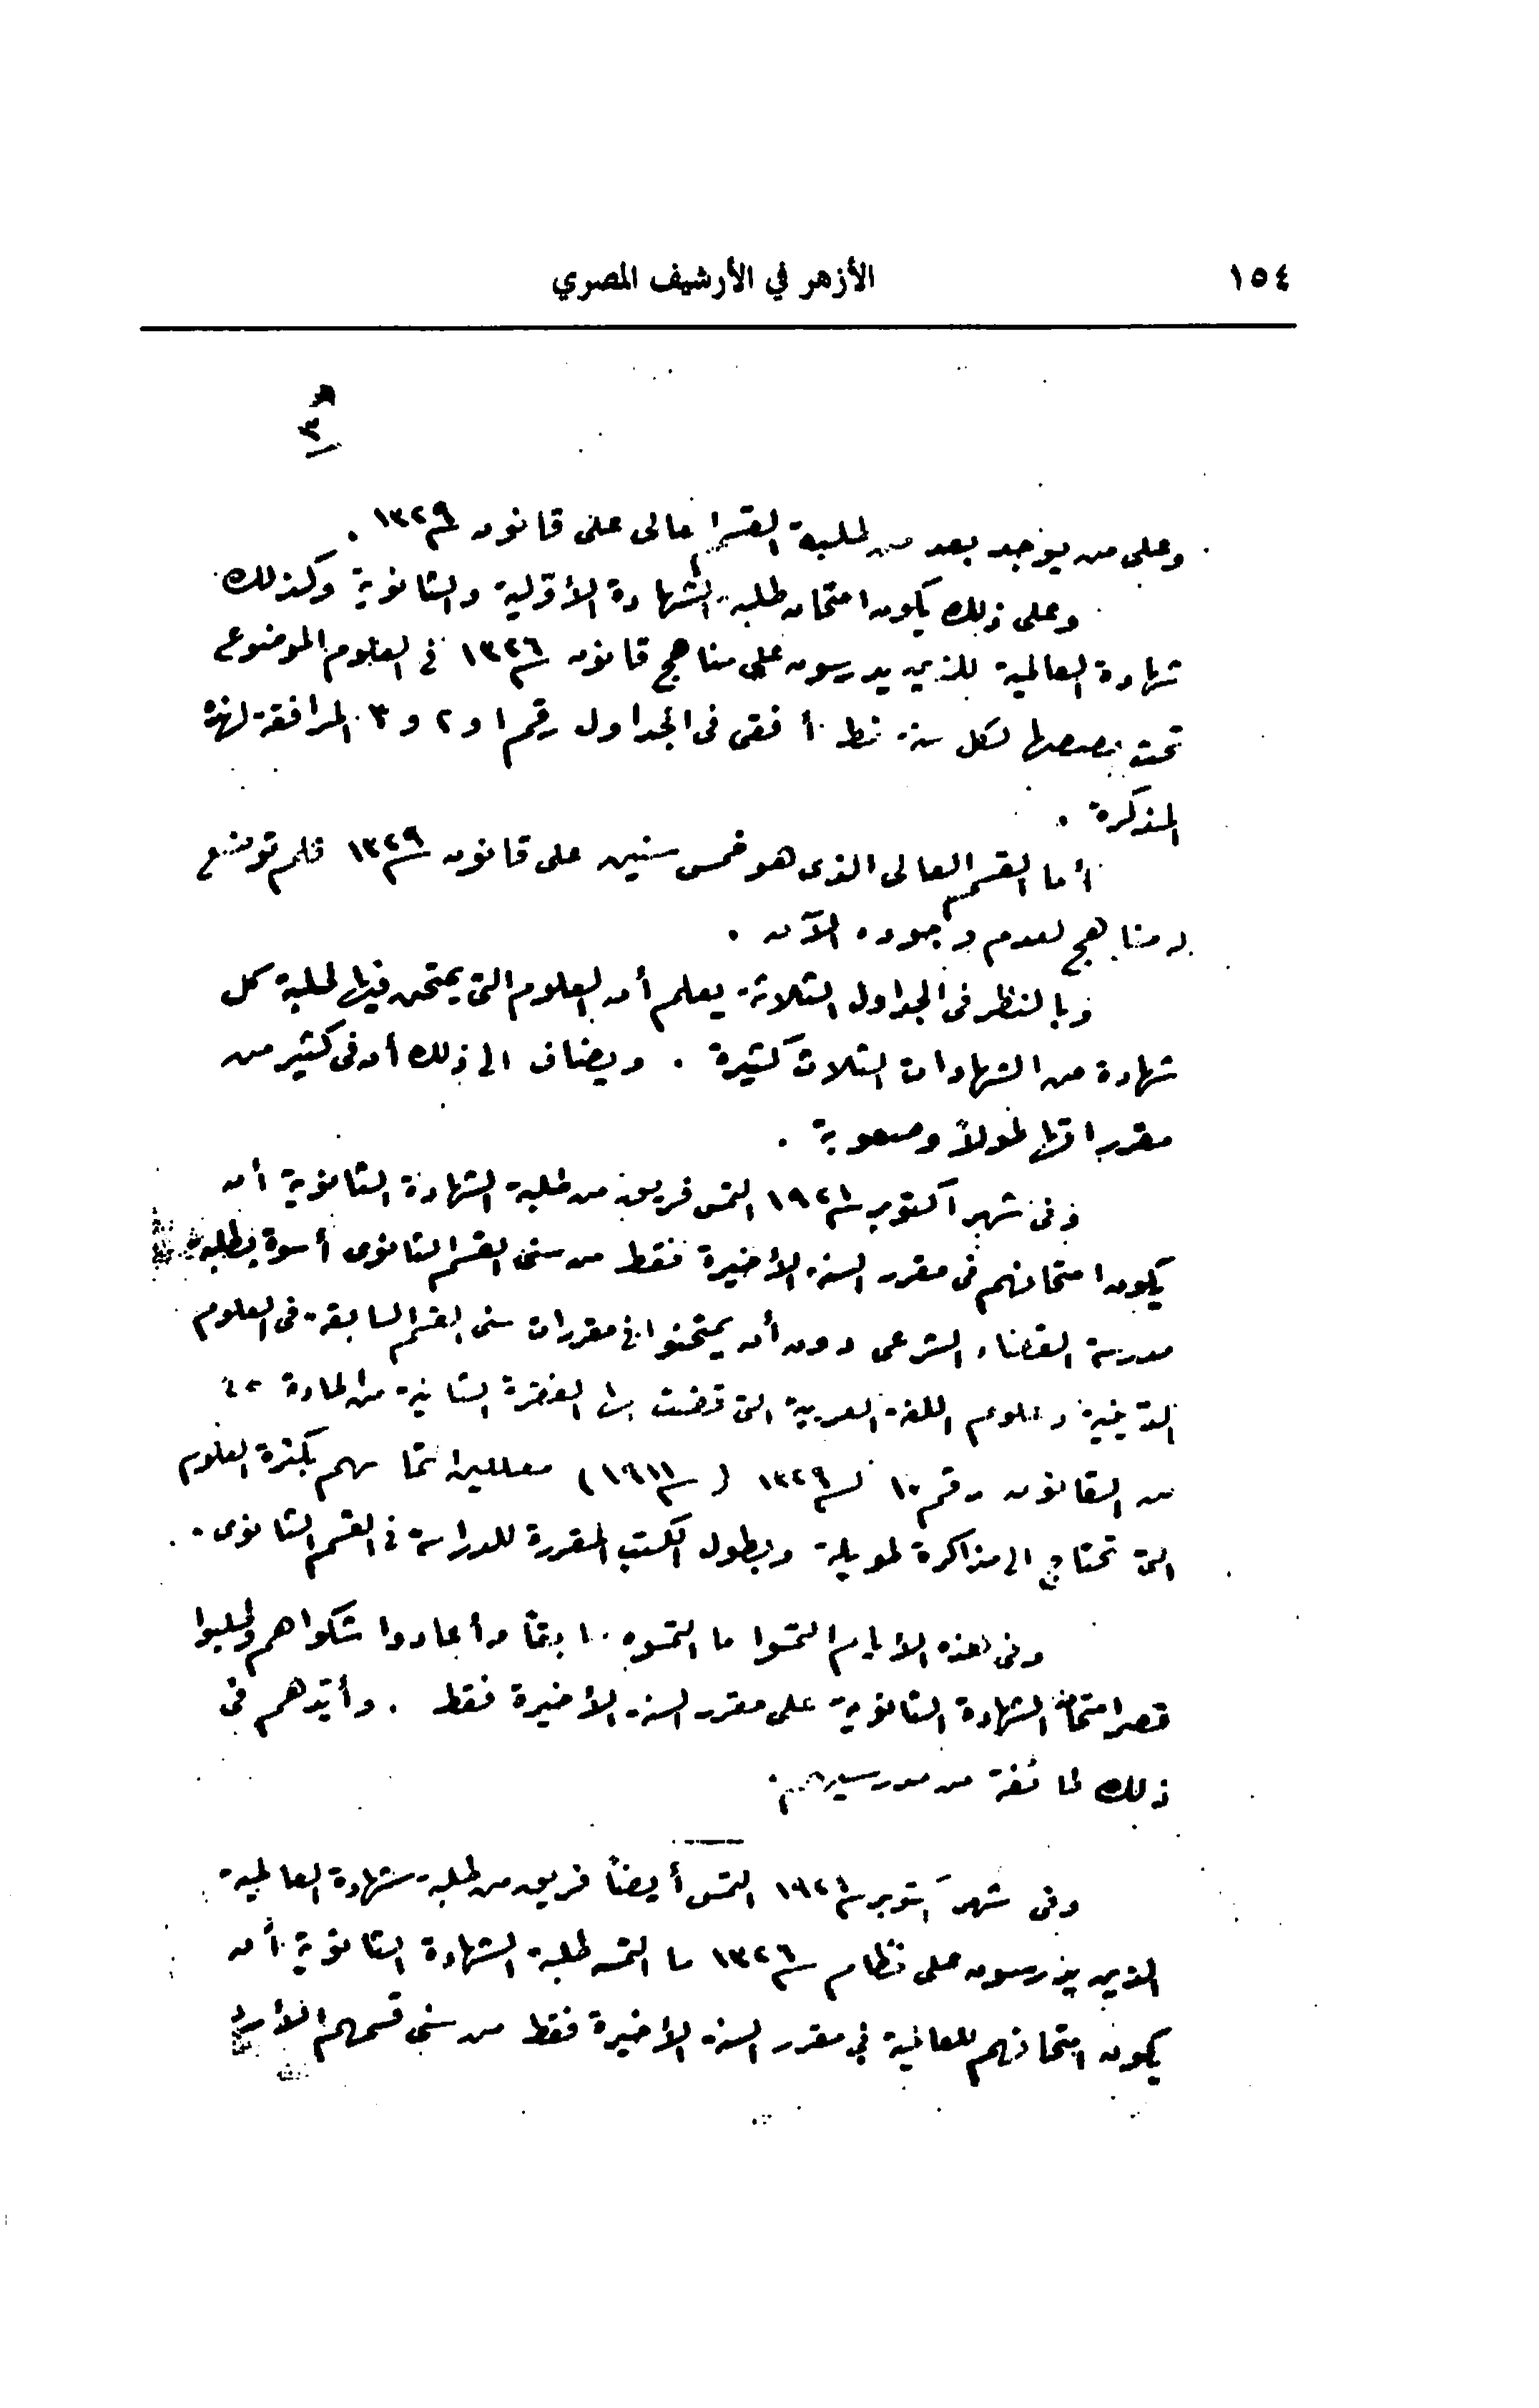 ١٥٤
الأزهر في الأرشيف المصري
٣
وعلى من يوجد بعد من طلبة القسم العالى على قانون سنة ١٣٢٩ .
وعلى ذلك يكون امتحان طلبة الشهادة الأولية والثانوية وكذلك
شهادة العالمية للذين يدرسون على مناهج قانون سنة ١٣٢٦ فى العلوم الموضوع
تحت بعضها لكل سنة خط أفقى فى الجداول رقم ١ و ٢ و ٣ المرافقة لهذه
المذكرة .
أما القسم العالى الذى هو خمس سنين على قانون سنة ١٣٢٩ فلم توضع
له مناهج لعدم وجوده الآن .
وبالنظر فى الجداول الثلاثة يعلم أن العلوم التى يمتحن فيها طلبة كل
شهادة من الشهادات الثلاث كثيرة . ويضاف الى ذلك أن فى كثير من
مقرراتها طولاً وصعوبة .
وفى شهر أكتوبر سنة ١٩٢١ التمس فريق من طلبة الشهادة الثانوية أن
يكون امتحانهم فى مقرر السنة الأخيرة فقط من سنى القسم الثانوى أسوة بطلبة
مدرسة القضاء الشرعى دون أن يمتحنوا فى مقررات سنى القسم السابقة فى العلوم
الدينية وعلوم اللغة العربية التى قضت بها الفقرة الثانية من المادة
من القانون رقم ١٠ لسنة ١٣٢٩ ( سنة ١٩١١ ) معللين التماسهم بكثرة العلوم
التى تحتاج الى مذاكرة طويلة وبطول الكتب المقررة للدراسة فى القسم الثانوى .
وفى هذه الأيام التمسوا ما التمسوه سابقاً وأعادوا شكواهم وطلبوا
قصر امتحان الشهادة الثانوية على مقرر السنة الأخيرة فقط . وأيدهم فى
ذلك طائفة من مدرسيهم .
وفى شهر أكتوبر سنة ١٩٢١ التمس أيضاً فريق من طلبة شهادة العالمية
الذين يدرسون على نظام سنة ١٣٢٦ ما التمسه طلبة الشهادة الثانوية أن
يكون امتحانهم للعالمية فى مقرر السنة الأخيرة فقط من سنى قسمهم